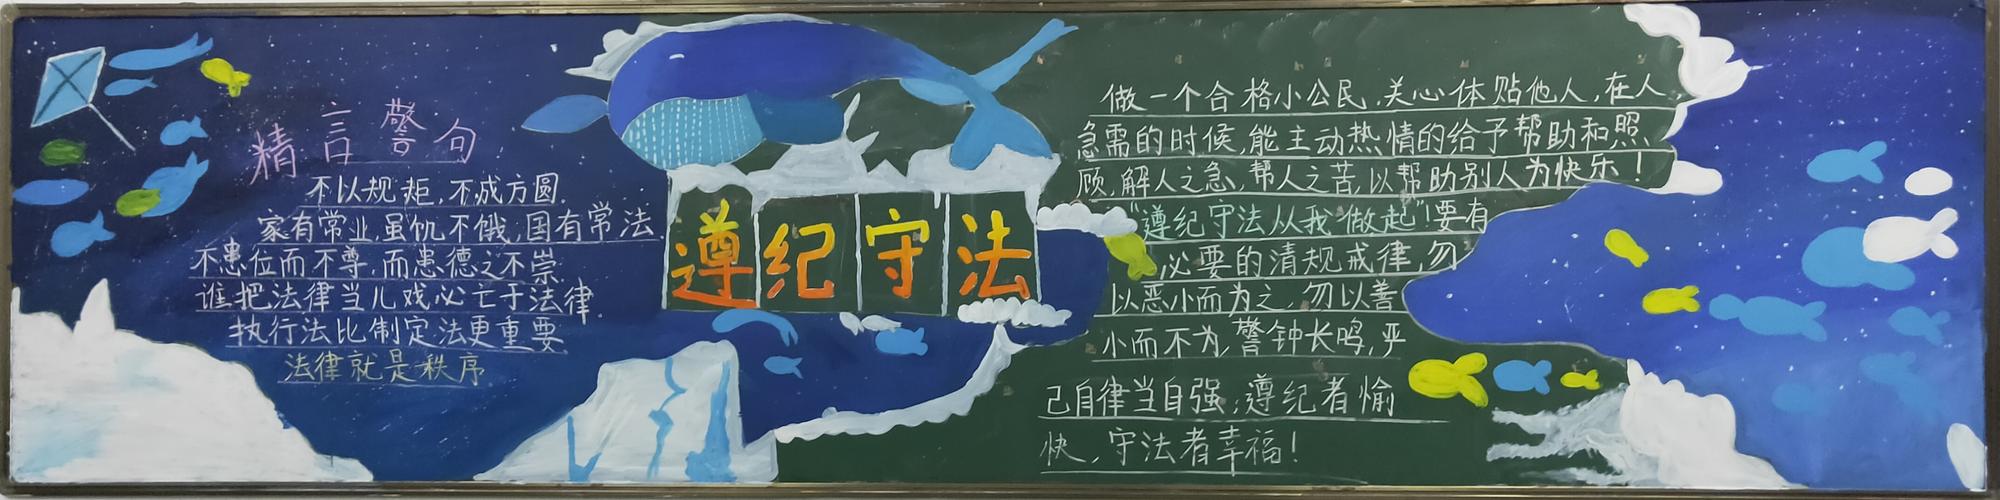 精言警句
不以规矩,不成方圆.
家有常业,虽饥不饿,国有常法
不患位而不尊,而患德之不崇
谁把法律当儿戏必亡于法律.
执行法比制定法更重要
法律就是秩序
遵纪守法
做一个合格小公民,关心体贴他人,在人
急需的时候,能主动热情的给予帮助和照
顾,解人之急,帮人之苦,以帮助别人为快乐!
"遵纪守法从我做起"!要有
必要的清规戒律,勿
以恶小而为之,勿以善
小而不为,警钟长鸣,严
己自律当自强;遵纪者愉
快,守法者幸福!